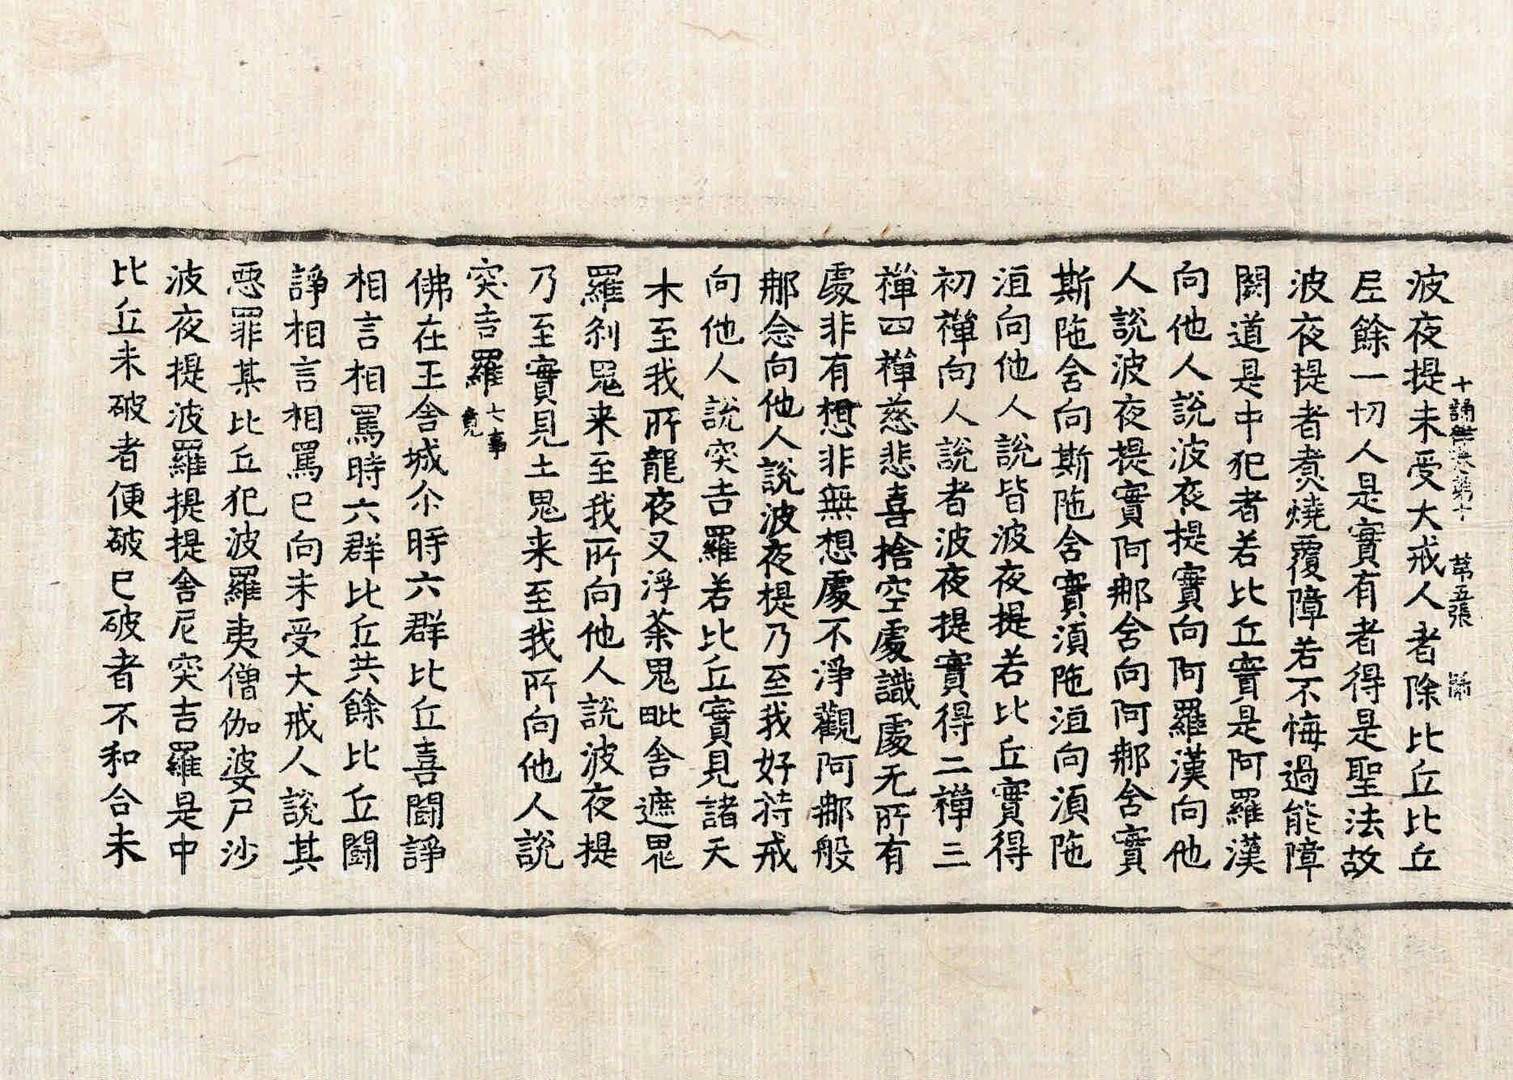 十誦律卷第十 第五張
波夜提未受大戒人者除比丘比丘
尼餘一切人是實有者得是聖法故
波夜提者煮燒覆障若不悔過能障
閡道是中犯者若比丘實是阿羅漢
向他人說波夜提實向阿羅漢向他
人說波夜提實阿那舍向阿那舍實
斯陁舍向斯陁舍實湏陁洹向湏陁
洹向他人說皆波夜提若比丘實得
初禪向人說者波夜提實得二禪三
禪四禪慈悲喜捨空處識處无所有
處非有想非無想處不淨觀阿那般
那念向他人說波夜提乃至我好持戒
向他人說突吉羅若比丘實見諸天
木至我所龍夜叉浮荼鬼毗舍遮鬼
羅剎鬼来至我所向他人說波夜提
乃至實見土鬼来至我所向他人說
突吉羅七事竟
佛在王舍城尒時六群比丘喜鬪諍
相言相罵時六群比丘共餘比丘鬪
諍相言相罵已向未受大戒人說其
惡罪某比丘犯波羅夷僧伽婆尸沙
波夜提波羅提提舍尼突吉羅是中
比丘未破者便破已破者不和合未